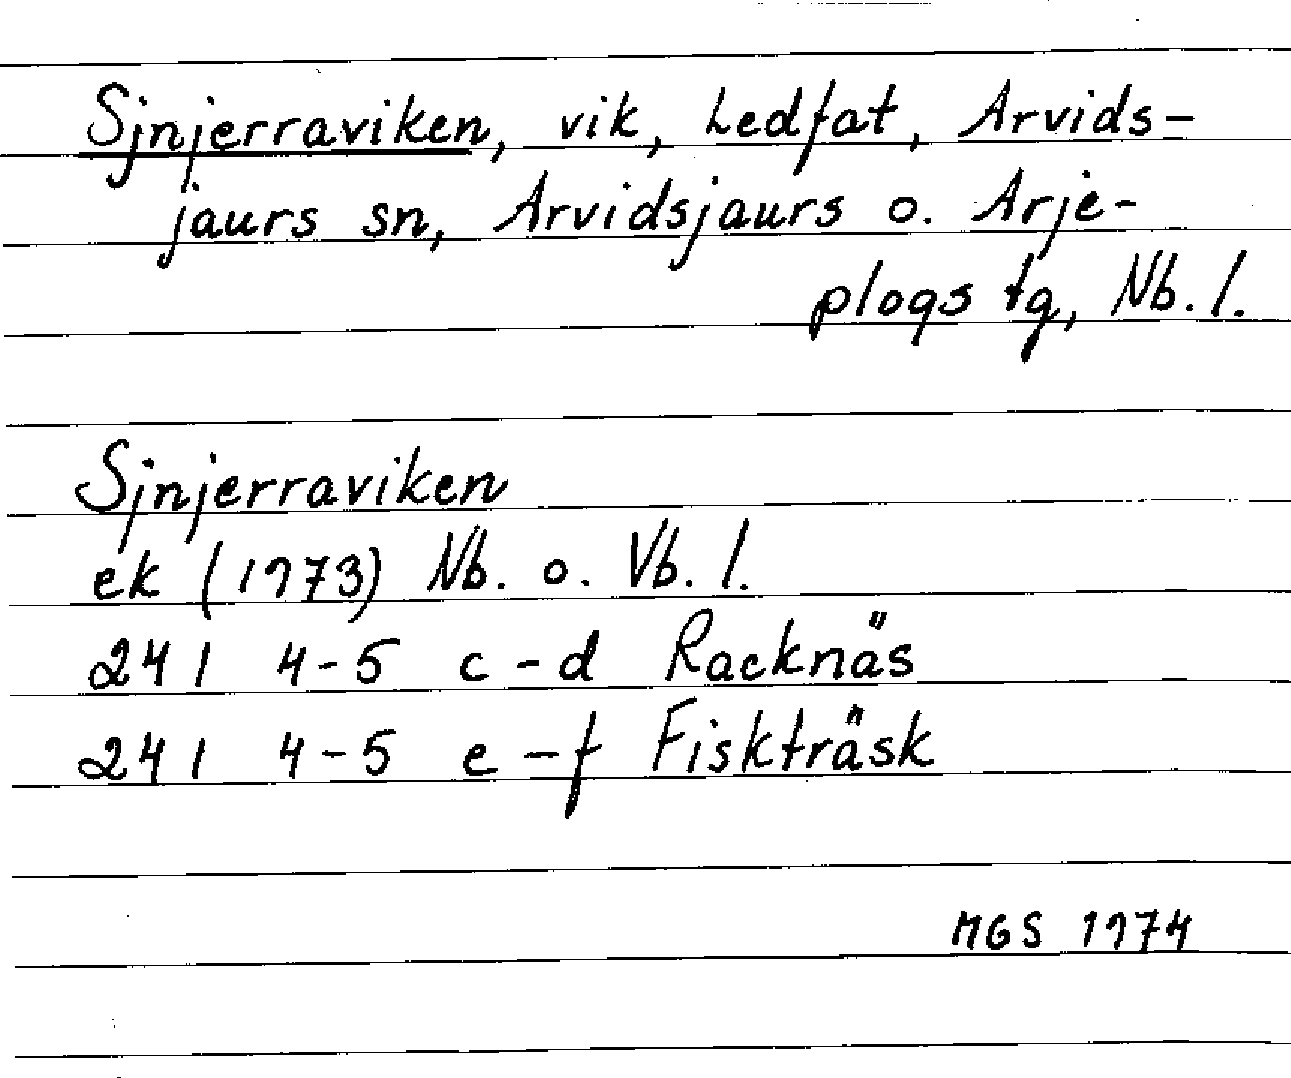 Sjnjerraviken, vik, Ledfat, Arvids-
jaurs sn, Arvidsjaurs o. Arje-
plogs tg, Nb. l.
Sjnjerraviken
ek (1973) Nb. o. Vb. l.
24 I 4-5 c-d Racknäs
24 I 4-5 e-f Fiskträsk
MGS 1974